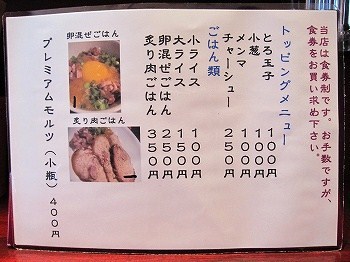 当店は食券制です。お手数ですが、
食券をお買い求め下さい。
トッピングメニュー
とろ玉子 100円
小葱 100円
メンマ 100円
チャーシュー 250円
ごはん類
小ライス 100円
大ライス 150円
卵混ぜごはん 250円
炙り肉ごはん 350円
卵混ぜごはん
炙り肉ごはん
プレミアムモルツ(小瓶) 400円